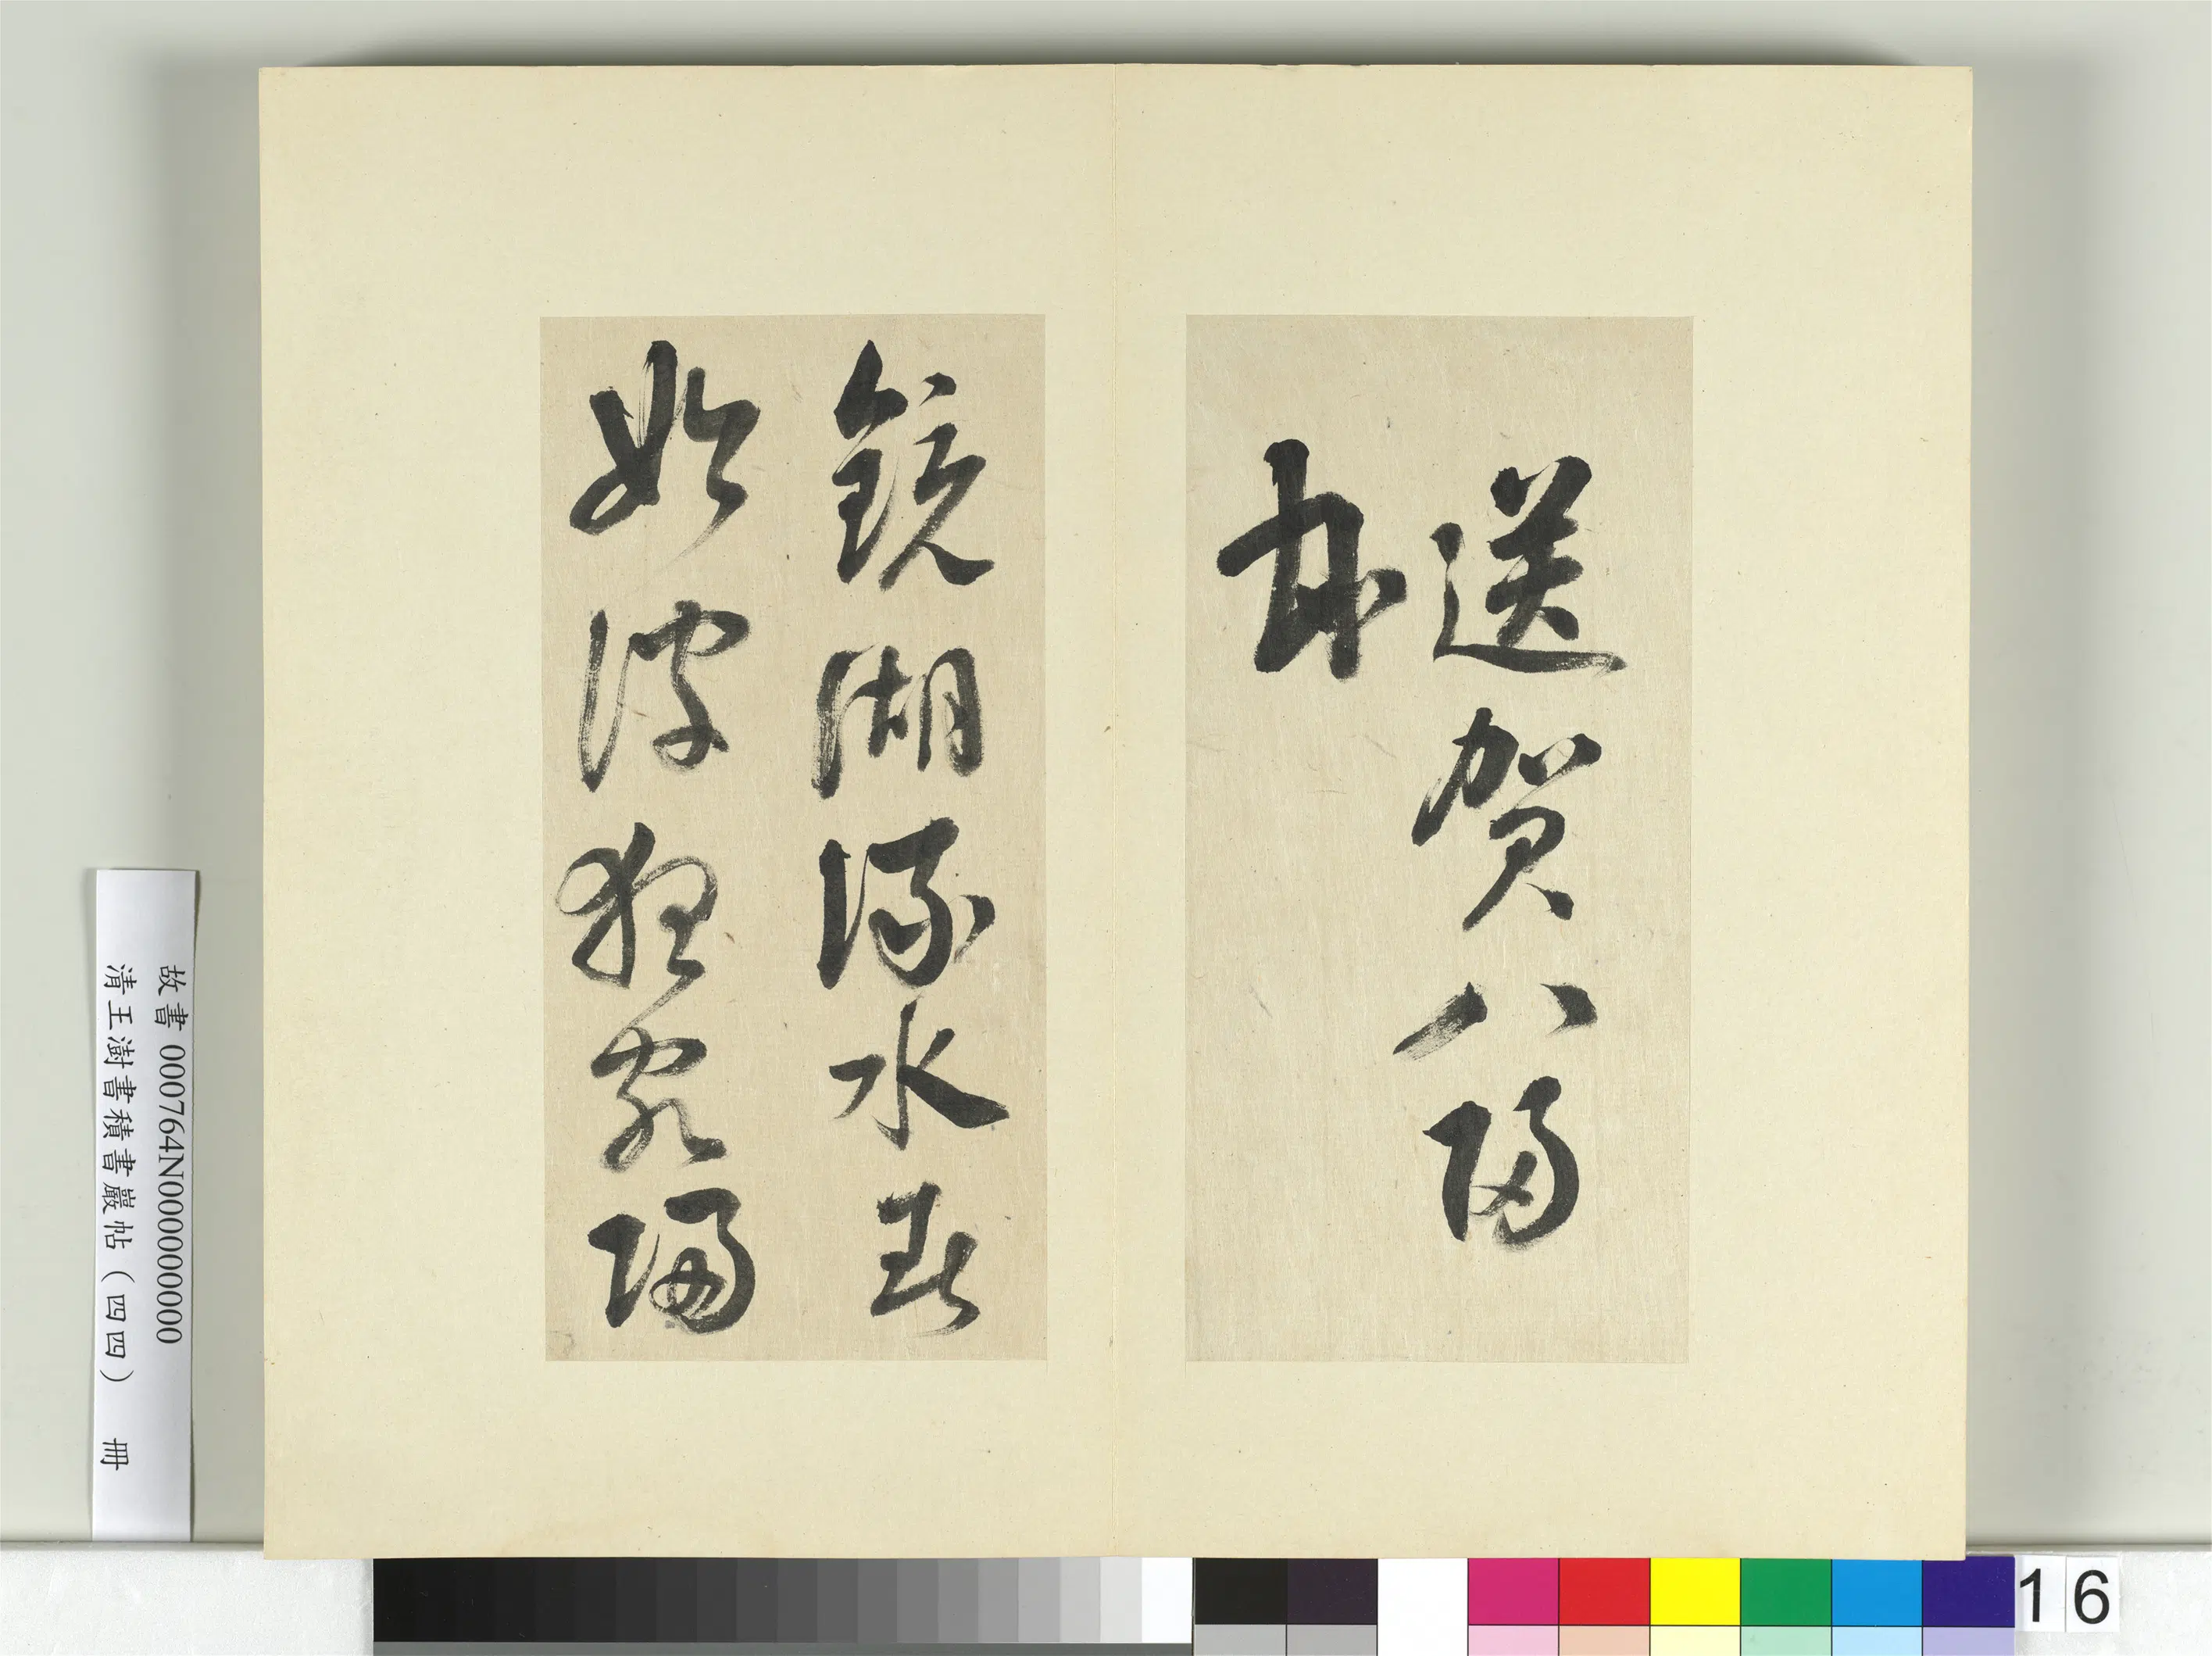 送賀八歸
越
鏡湖流水春
始波狂客歸
故書 000764N000000000
清王澍書積書巖帖(四四) 冊
16